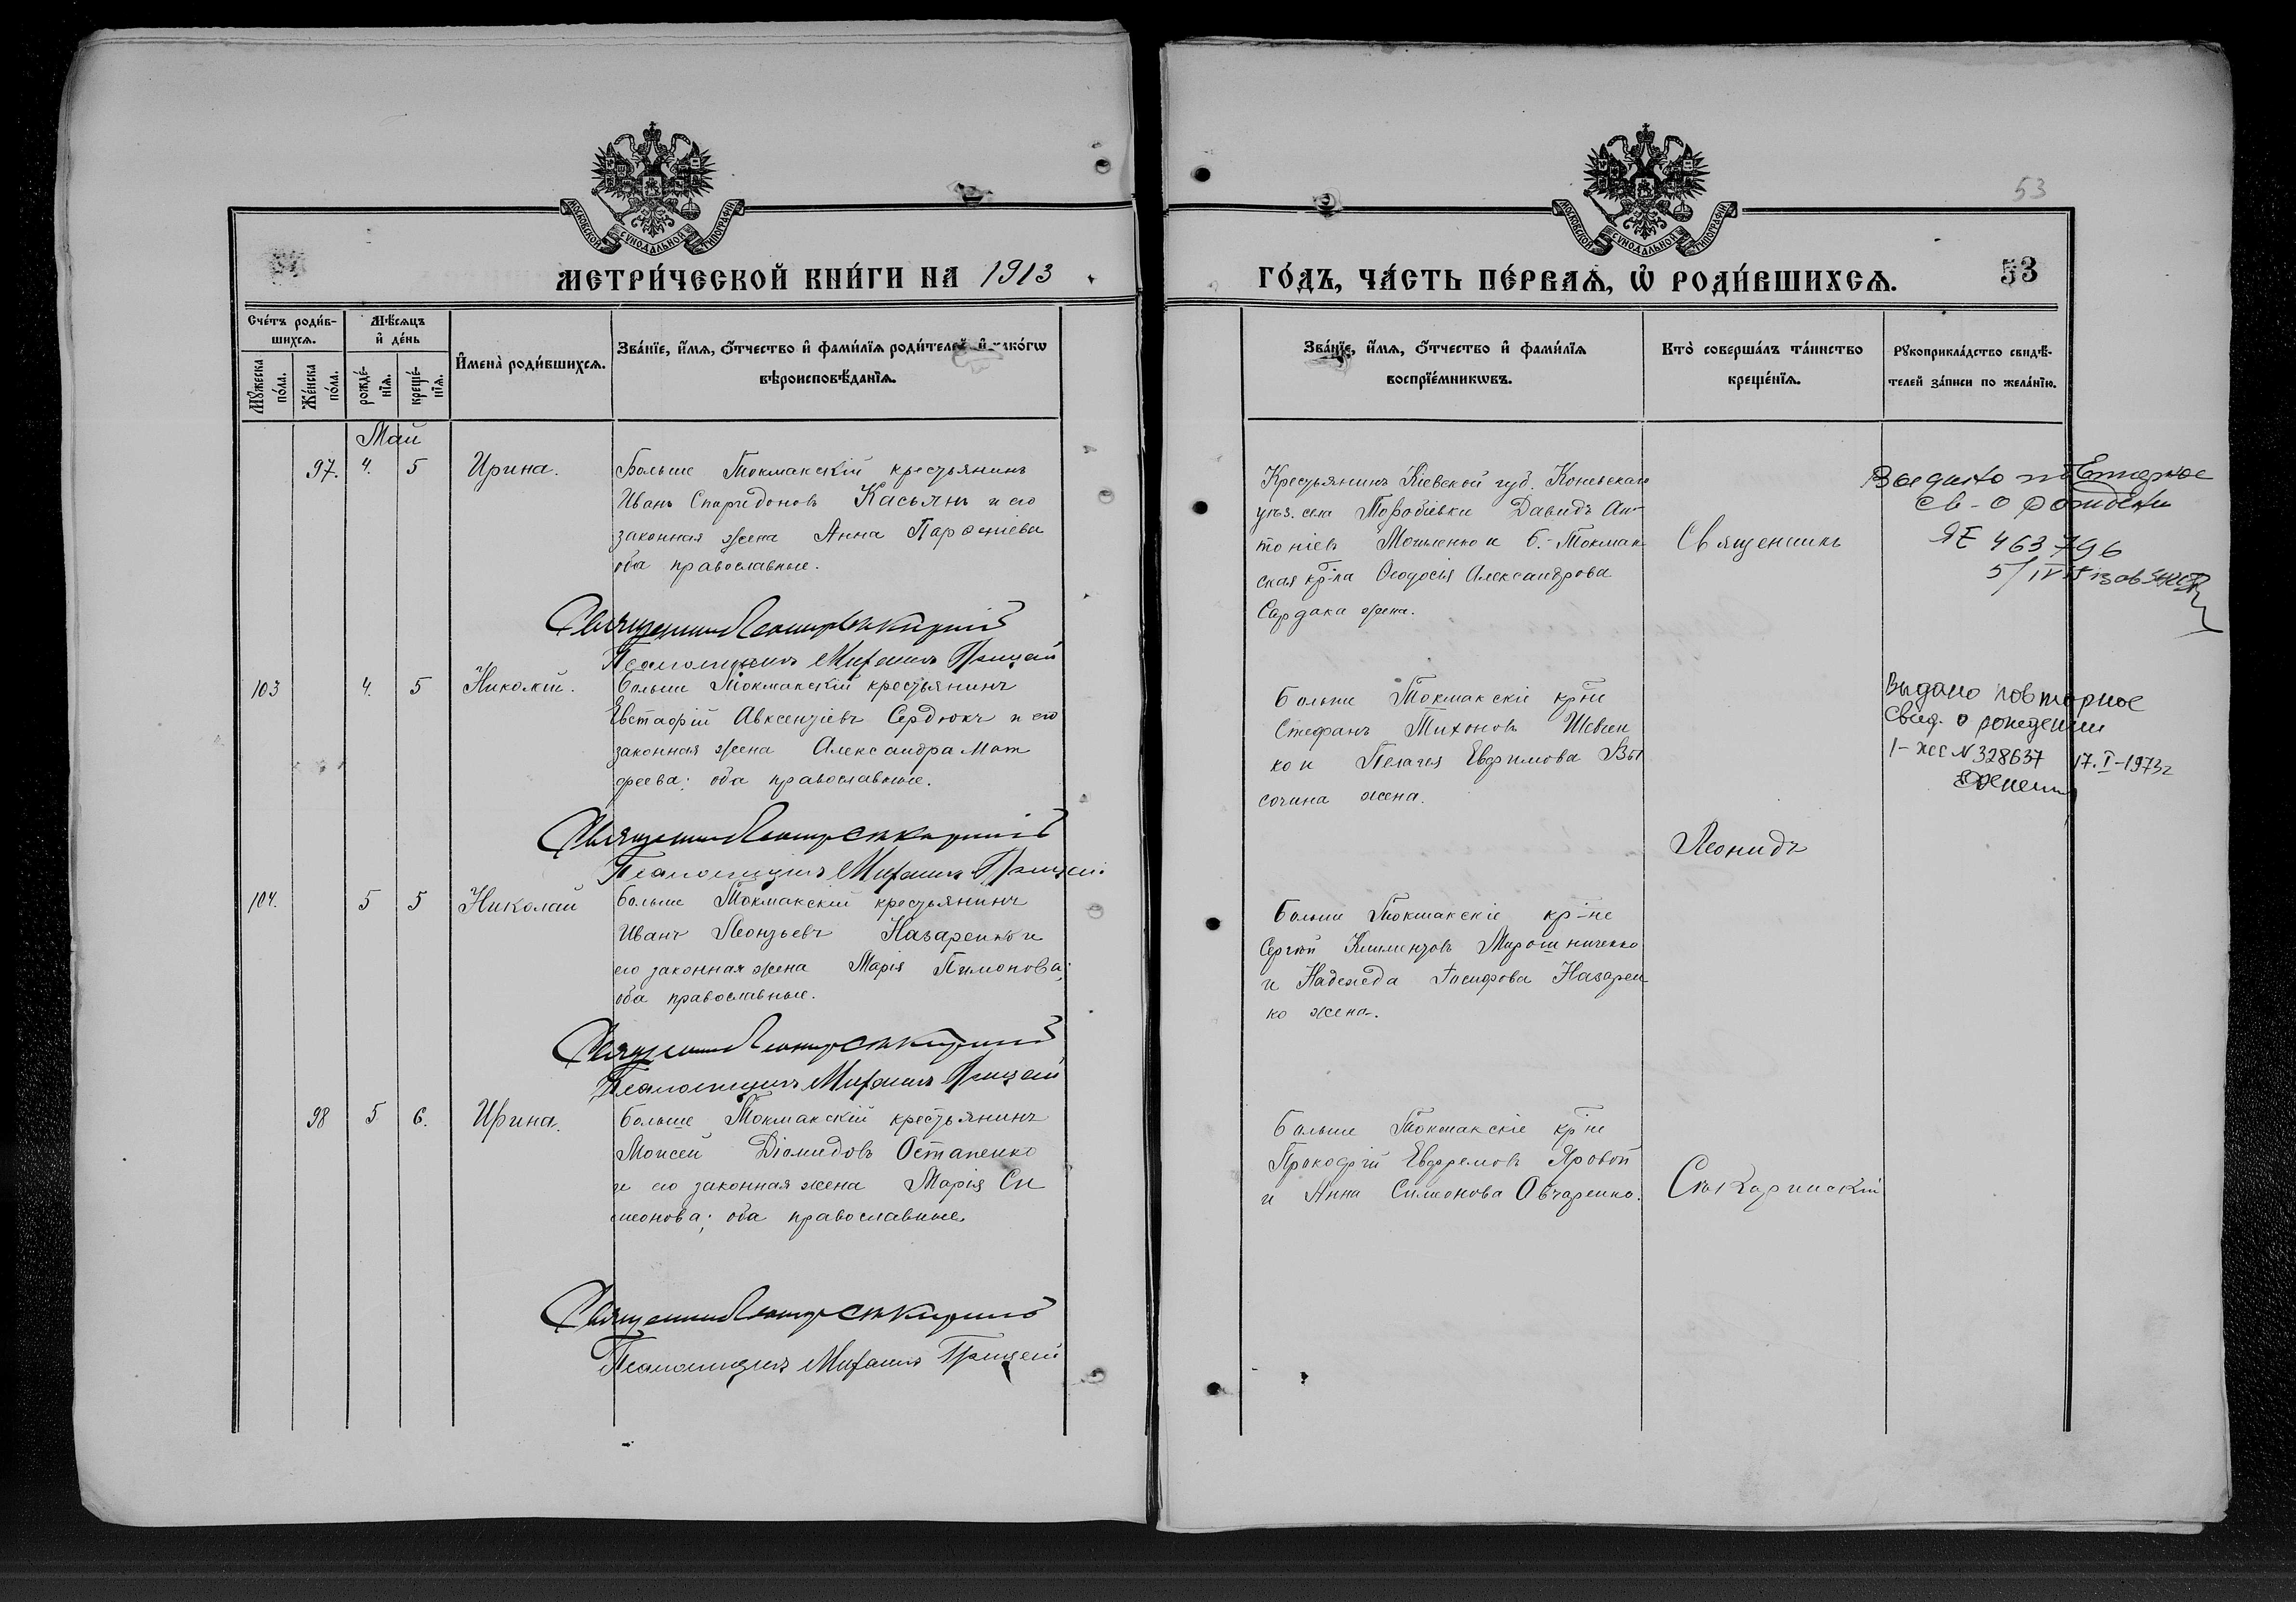 53
МОСКОВСКОЙ СѴНОДАЛЬНОЙ ТИПОГРАФІИ
МОСКОВСКОЙ СѴНОДАЛЬНОЙ ТИПОГРАФІИ
МЕТРИ́ЧЕСКОЙ КНИ́ГИ НА 1913
ГО́ДЪ, ЧА́СТЬ ПЕ́РВАѦ, Ѡ҆ РОДИ́ВШИХСѦ.
53
Сче́тъ роди́в-
шихсѧ.
Мꙋ́жеска по́ла.
Же́нска по́ла.
Мѣ́сѧцъ
и҆ де́нь
рожде́-нїѧ.
креще́-нїѧ.
И҆мена̀ роди́вшихсѧ.
Зва́нїе, и҆́мѧ, ѻ҆́тчество и҆ фами́лїѧ роди́телей, и҆ како́гѡ
вѣроисповѣ́данїѧ.
Зва́нїе, и҆́мѧ, ѻ҆́тчество и҆ фами́лїѧ
воспрїе́мникѡвъ.
Кто̀ соверша́лъ та́инство
креще́нїѧ.
Рꙋкоприкла́дство свидѣ́-
телей за́писи по жела́нїю.
Май
97. 4. 5 Ирина.
Больше Токмакскій крестьянинъ
Иванъ Спиридоновъ Касьянъ и его
законная жена Анна
оба православные.
Священникъ Леонидъ Снкаринскій
Псаломщикъ Михаилъ
Крестьянинъ Кіевской губ.
уѣз. села Давидъ Ан-
тоніевъ и Б.-Токмак
ская кр-ка Ѳеодосія Александрова
Сардака жена.
Священникъ
св-о рождении
ЯЕ 463796
103 4. 5 Николай.
Больше Токмакскій крестьянинъ
Евстафій Авксентіевъ Сердюкъ и его
законная жена Александра Мат
феева; оба православные.
Священникъ Леонидъ Снкаринскій
Псаломщикъ Михаилъ
Больше Токмакскіе кр-не
Стефанъ Тихоновъ Шевчен
ко и Пелагея Евфимова Вы
сочина жена.
Леонидъ
Выдано повторное
Свид. о рождении
1-ЖС N 328637 17.I-1973г
104. 5 5 Николай
Больше Токмакскій крестьянинъ
Иванъ Леонтьевъ Назаренко и
его законная жена Марія Пимонова;
оба православные.
Священникъ Леонидъ Снкаринскій
Псаломщикъ Михаилъ
Больше Токмакскіе кр-не
Сергѣй Климентовъ Мирошниченко
и Надежда Іосифова Назарен
ко жена.
98 5 6. Ирина.
Больше Токмакскій крестьянинъ
Моисей Діомидовъ Остапенко
и его законная жена Марія Си
меонова; оба православные.
Священникъ Леонидъ Снкаринскій
Псаломщикъ Михаилъ
Больше Токмакскіе кр-не
Прокофій Евфремовъ Яровой
и Анна Симеонова Овчаренко.
Снкаринскій